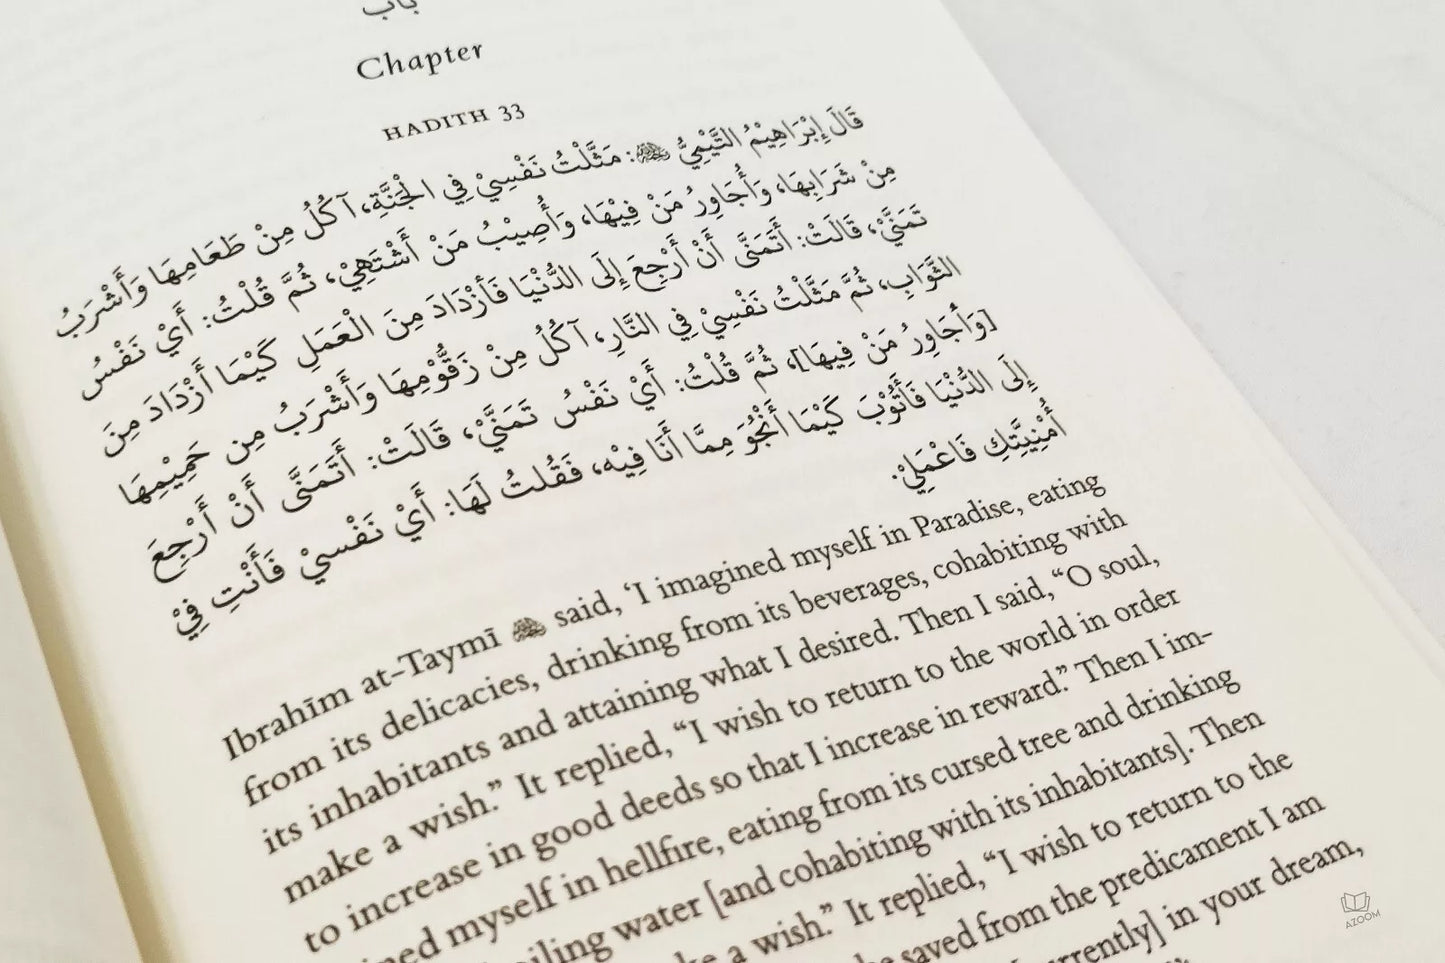 باب
Chapter
HADITH 33
قَالَ إِبْرَاهِيْمُ التَّيْمِيُّ : مَثَّلْتُ نَفْسِيْ فِي الْجَنَّةِ، آكُلُ مِنْ طَعَامِهَا وَأَشْرَبُ
مِنْ شَرَابِهَا، وَأُجَاوِرُ مَنْ فِيْهَا، وَأُصِيْبُ مَنْ أَشْتَهِيْ، ثُمَّ قُلْتُ: أَيْ نَفْسُ
تَمَنَّيْ، قَالَتْ: أَتَمَنَّى أَنْ أَرْجِعَ إِلَى الدُّنْيَا فَأَزْدَادَ مِنَ الْعَمَلِ كَيْمَا أَزْدَادَ مِنَ
الثَّوَابِ، ثُمَّ مَثَّلْتُ نَفْسِيْ فِي النَّارِ، آكُلُ مِنْ زَقُّوْمِهَا وَأَشْرَبُ مِن حَمِيْمِهَا
[وَأُجَاوِرُ مَنْ فِيهَا]، ثُمَّ قُلْتُ: أَيْ نَفْسُ تَمَنَّيْ، قَالَتْ: أَتَمَنَّى أَنْ أَرْجِعَ
إِلَى الدُّنْيَا فَأَتُوْبَ كَيْمَا أَنْجُوَ مِمَّا أَنَا فِيْه، فَقُلتُ لَهَا: أَيْ نَفْسيْ فَأَنْتِ فِيْ
أُمْنِيِتَّكِ فَاعْمَلِيْ.
Ibrahīm at-Taymī said, ‘I imagined myself in Paradise, eating
from its delicacies, drinking from its beverages, cohabiting with
its inhabitants and attaining what I desired. Then I said, “O soul,
make a wish.” It replied, “I wish to return to the world in order
to increase in good deeds so that I increase in reward.” Then I im-
ned myself in hellfire, eating from its cursed tree and drinking
oiling water [and cohabiting with its inhabitants]. Then
ke a wish.” It replied, “I wish to return to the
be saved from the predicament I am
urrently] in your dream,
AZOOM